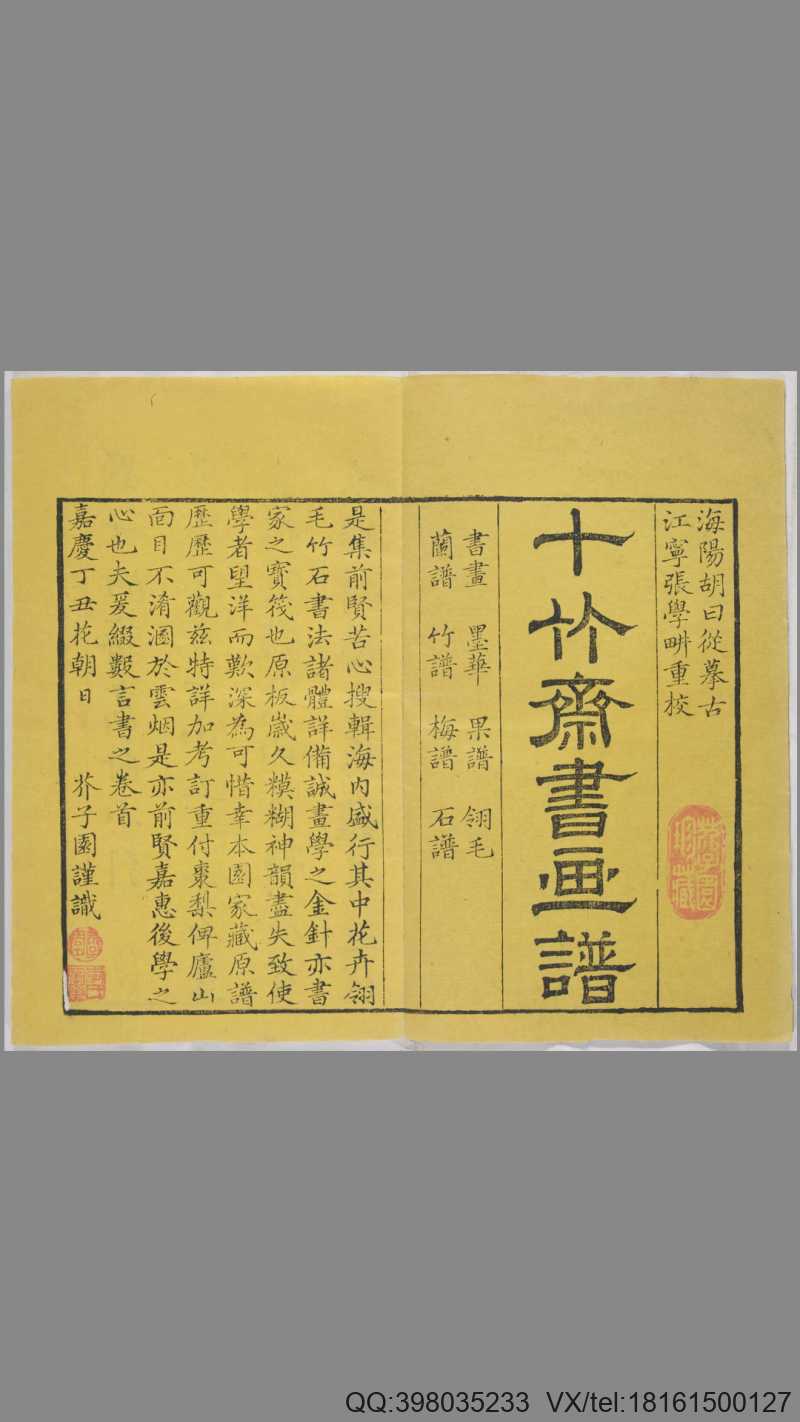 海陽胡曰從摹古
江寧張學畊重校
十竹齋書画譜
書畫 墨華 果譜 翎毛
蘭譜 竹譜 梅譜 石譜
是集前賢苦心搜輯海内盛行其中花卉翎
毛竹石書法諸體詳備誠畫學之金針亦書
家之寶筏也原板歲久糢糊神韻盡失致使
學者望洋而歎深為可惜幸本園家藏原譜
歷歷可觀兹特詳加考訂重付棗梨俾廬山
面目不淆溷於雲烟是亦前賢嘉惠後學之
心也夫爰綴數言書之卷首
嘉慶丁丑花朝日 芥子園謹識
QQ:398035233 VX/tel:18161500127